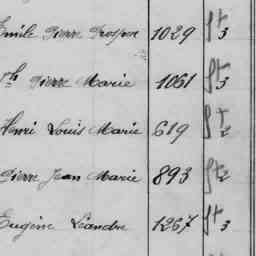 Emile Pierre Prosper 1029 ft 3
ph Pierre Marie 1061 ft 3
Henri Louis Marie 619 ft 2
Pierre Jean Marie 893 ft 2
Eugène Léandre 1267 ft 3